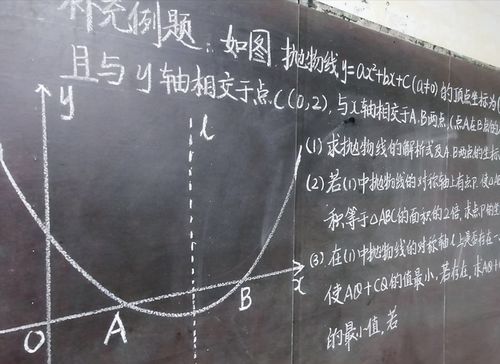 补充例题：如图，抛物线y=ax²+bx+c(a≠0)的顶点坐标为(
且与y轴相交于点C(0,2)，与x轴相交于A.B两点，(点A在B点的
(1) 求抛物线的解析式及A.B两点的坐标
(2) 若(1)中抛物线的对称轴上有点P.使△
积等于△ABC的面积的2倍，求点P的坐
(3). 在(1)中抛物线的对称轴l上是否存在一
使AQ+CQ的值最小，若存在，求AQ+
的最小值，若
y
l
x
O
A
B